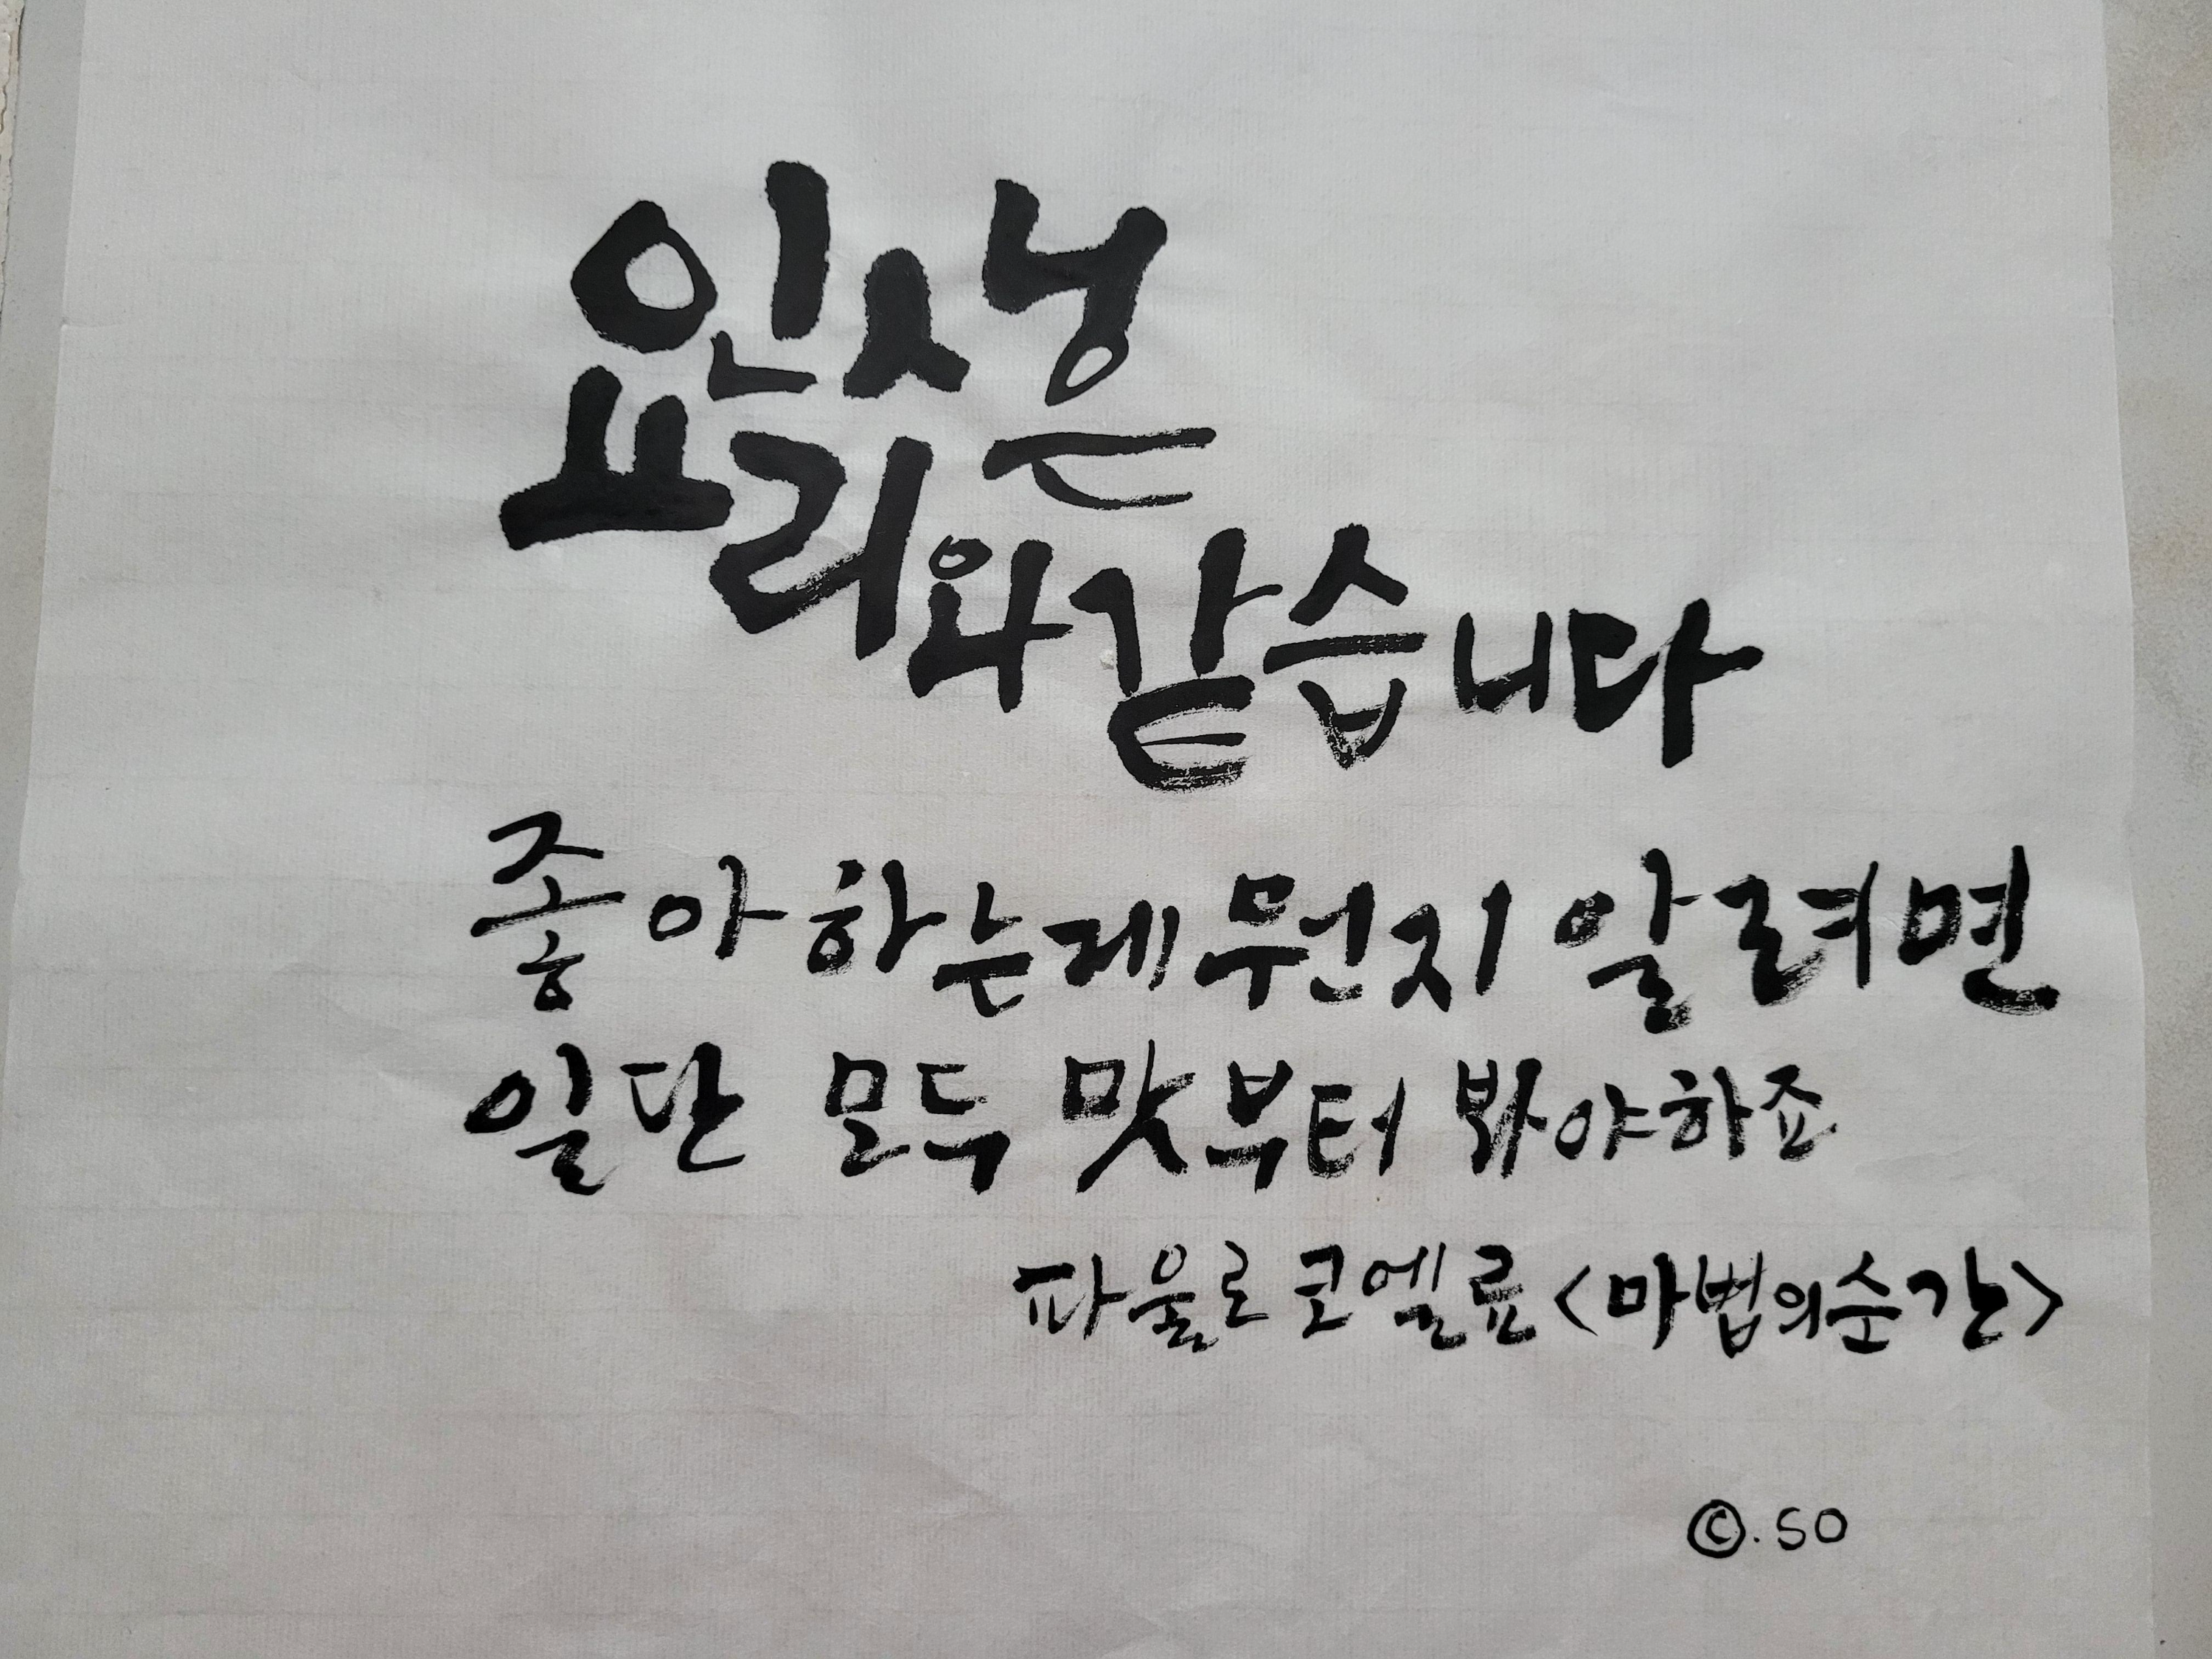 인생은
요리와 같습니다
좋아하는게 뭔지 알려면
일단 모두 맛부터 봐야하죠
파울로 코엘료 <마법의 순간>
©. SO